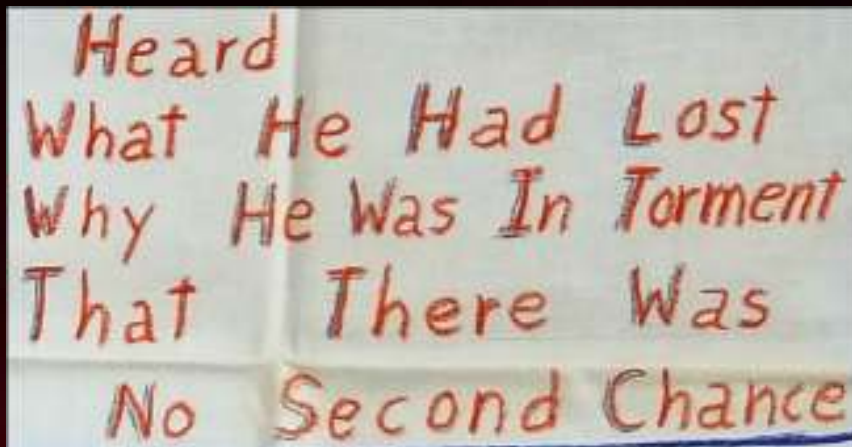 Heard
What He Had Lost
Why He Was In Torment
That There Was
No Second Chance